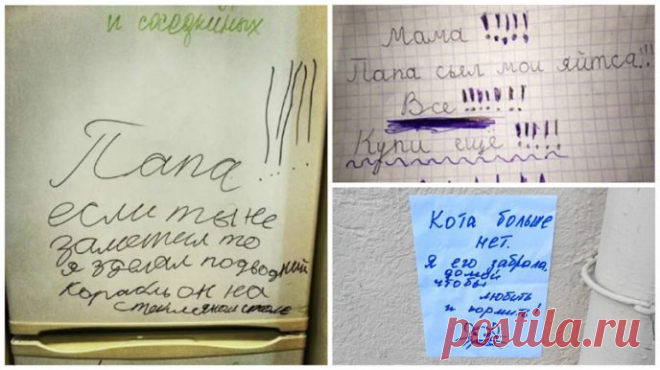 и соседкиных
Папа!!!!
если ты не
заметил то
я зделал подводний
корабль он на
стеклянном столе
Мама !!!!!
Папа сьел мои яйтса!!!
Все !!!!!!!
Купи ещё !!!!!
Кота больше
нет.
Я его забрала
домой
чтобы
любить
и кормить!
postila.ru